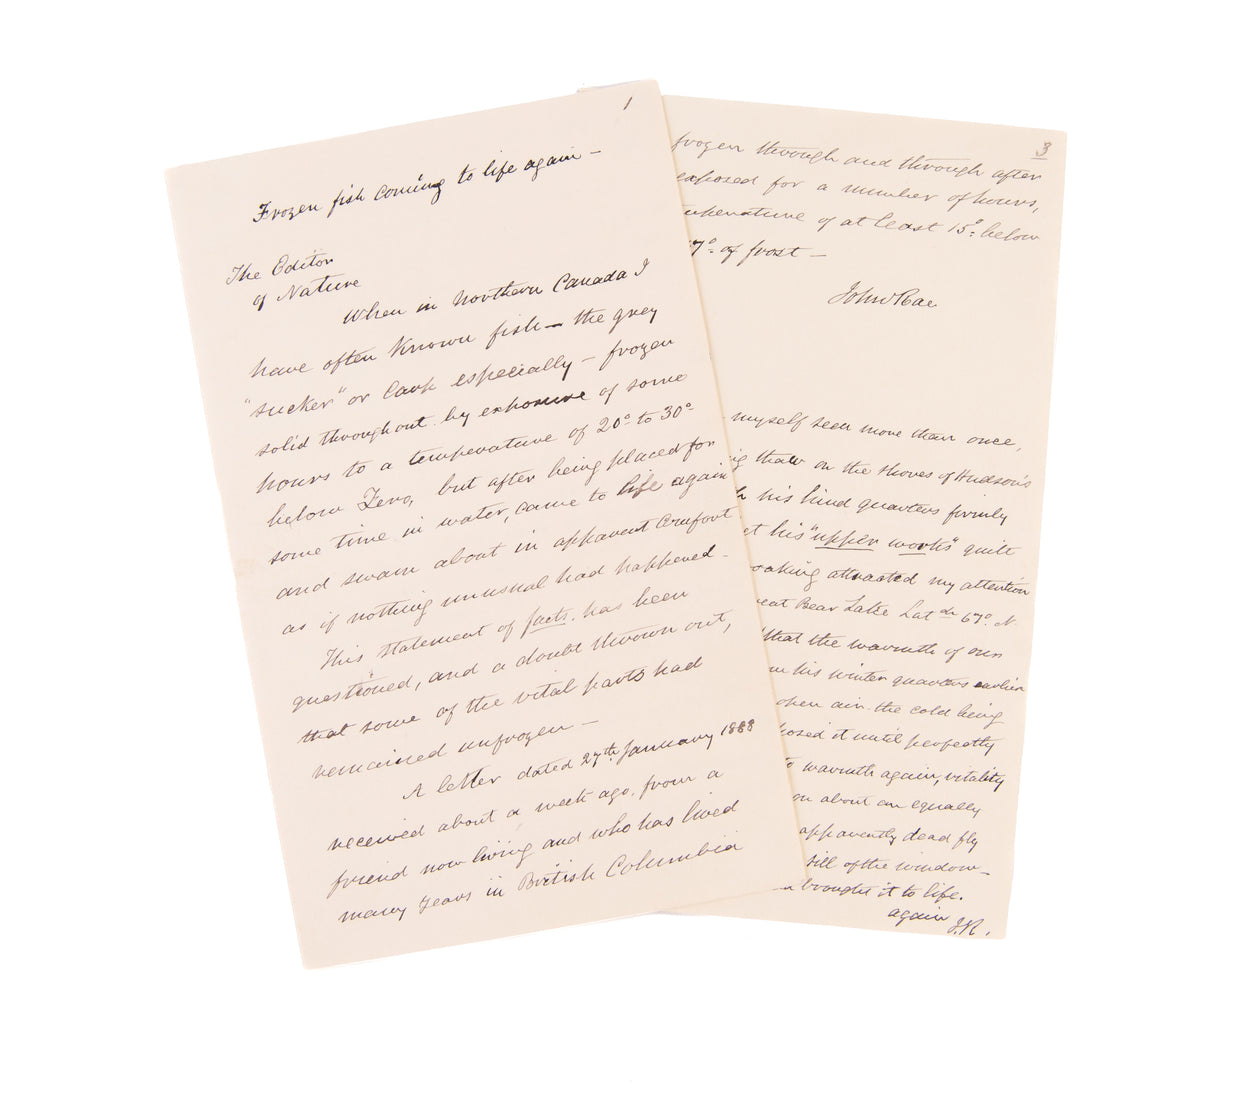 1
Frozen fish coming to life again —
The Editor
of Nature
When in Northern Canada I
have often known fish — the grey
"sucker" or carp especially — frozen
solid throughout by exposure of some
hours to a temperature of 20° to 30°
below Zero, but after being placed for
some time in water, came to life again
and swam about in apparent comfort
as if nothing unusual had happened —
This statement of facts has been
questioned, and a doubt thrown out,
that some of the vital parts had
remained unfrozen —
A letter dated 27th January 1888
received about a week ago, from a
friend now living and who has lived
many years in British Columbia
3
frozen through and through after
exposed for a number of hours,
temperature of at least 15° below
7° of frost —
John Rae
myself seen more than once,
thaw on the shores of Hudson's
his hind quarters firmly
his "upper works" quite
attracted my attention
Bear Lake Latde 67° N.
that the warmth of our
his winter quarters earlier
open air. the cold being
it until perfectly
warmth again, vitality
about an equally
apparently dead fly
sill of the window —
brought it to life.
again J.R.